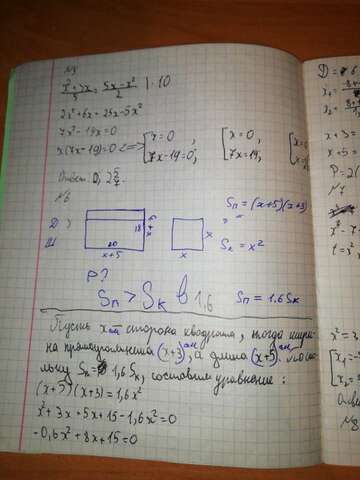 N5
x²+3x/5 = 5x-x²/2 | · 10
2x²+6x = 25x-5x²
7x²-19x=0
x(7x-19)=0 <=> [x=0, 7x-19=0; [x=0, 7x=19, [x=
Ответ: 0; 2 5/7.
N6
Sп = (x+5)(x+3)
Д
Ш
18
x+3
20
x+5
x
x
Sк = x²
P?
Sп > Sк в 1,6
Sп = 1.6 Sк
Пусть x см сторона квадрата, тогда шири-
на прямоугольника (x+3) см, а длина (x+5) см.
льку Sп = 1,6 Sк, составим уравнение:
(x+3) = 1,6x²
x²+3x+5x+15-1,6x²=0
-0,6x²+8x+15=0
D =
x₁ =
x₂ =
x+3 =
x+5 =
P = 2(
N7
x³-7
t = x²
x² = 3
N8